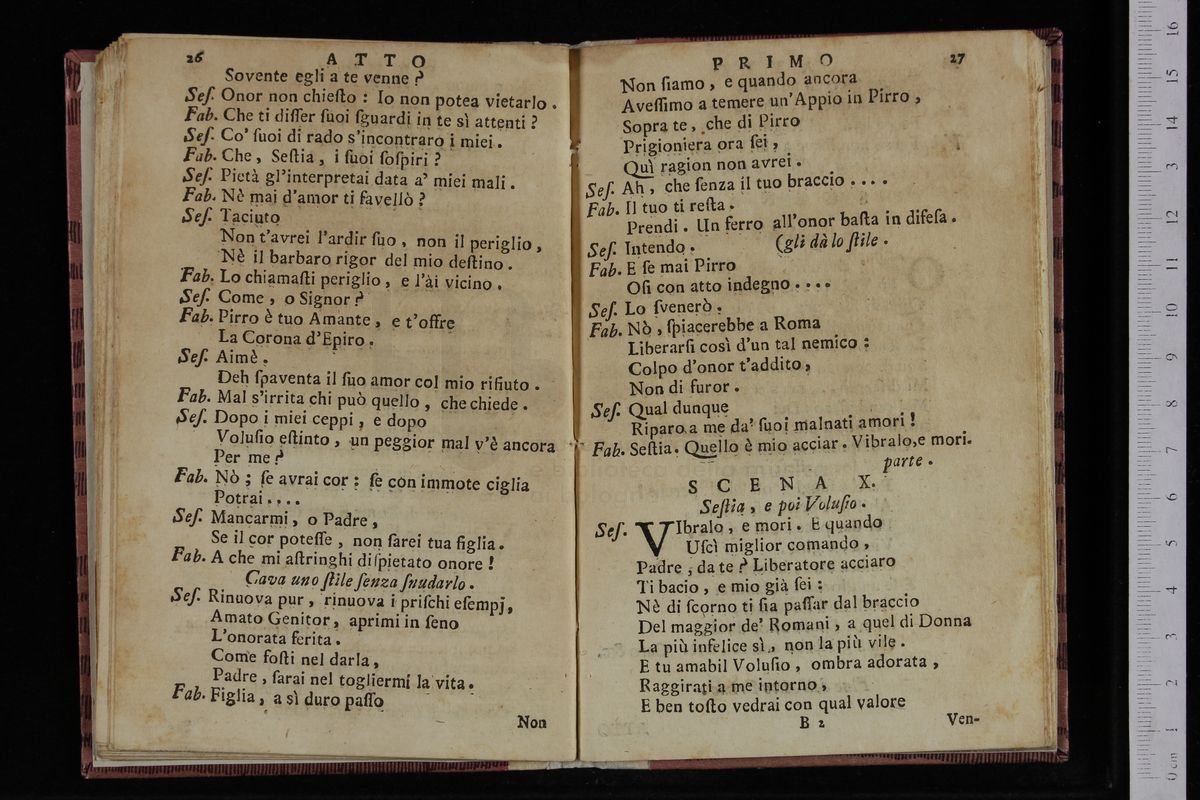 26
ATTO
Sovente egli a te venne?
Seſ. Onor non chieſto: Io non potea vietarlo.
Fab. Che ti diſſer ſuoi ſguardi in te sì attenti?
Seſ. Co' ſuoi di rado s'incontraro i miei.
Fab. Che, Seſtia, i ſuoi ſoſpiri?
Seſ. Pietà gl'interpretai data a' miei mali.
Fab. Nè mai d'amor ti favellò?
Seſ. Taciuto
Non t'avrei l'ardir ſuo, non il periglio,
Nè il barbaro rigor del mio deſtino.
Fab. Lo chiamaſti periglio, e l'ài vicino.
Seſ. Come, o Signor?
Fab. Pirro è tuo Amante, e t'offre
La Corona d'Epiro.
Seſ. Aimè.
Deh ſpaventa il ſuo amor col mio rifiuto.
Fab. Mal s'irrita chi può quello, che chiede.
Seſ. Dopo i miei ceppi, e dopo
Voluſio eſtinto, un peggior mal v'è ancora
Per me?
Fab. Nò; ſe avrai cor: ſe con immote ciglia
Potrai....
Seſ. Mancarmi, o Padre,
Se il cor poteſſe, non ſarei tua figlia.
Fab. A che mi aſtringhi diſpietato onore!
Cava uno ſtile ſenza ſnudarlo.
Seſ. Rinuova pur, rinuova i priſchi eſempj,
Amato Genitor, aprimi in ſeno
L'onorata ferita.
Come foſti nel darla,
Padre, ſarai nel togliermi la vita.
Fab. Figlia, a sì duro paſſo
Non
PRIMO
27
Non ſiamo, e quando ancora
Aveſſimo a temere un'Appio in Pirro,
Sopra te, che di Pirro
Prigioniera ora ſei,
Quì ragion non avrei.
Seſ. Ah, che ſenza il tuo braccio....
Fab. Il tuo ti reſta.
Prendi. Un ferro all'onor baſta in difeſa.
Seſ. Intendo. (gli dà lo ſtile.
Fab. E ſe mai Pirro
Oſi con atto indegno....
Seſ. Lo ſvenerò.
Fab. Nò, ſpiacerebbe a Roma
Liberarſi così d'un tal nemico:
Colpo d'onor t'addito,
Non di furor.
Seſ. Qual dunque
Riparo a me da' ſuoi malnati amori!
Fab. Seſtia. Quello è mio acciar. Vibralo, e mori.
parte.
SCENA X.
Seſtia, e poi Voluſio.
Seſ. VIbralo, e mori. E quando
Uſcì miglior comando,
Padre, da te? Liberatore acciaro
Ti bacio, e mio già ſei:
Nè di ſcorno ti ſia paſſar dal braccio
Del maggior de' Romani, a quel di Donna
La più infelice sì, non la più vile.
E tu amabil Voluſio, ombra adorata,
Raggirati a me intorno,
E ben toſto vedrai con qual valore
B 2
Ven-
0 cm 1 2 3 4 5 6 7 8 9 10 11 12 13 14 15 16